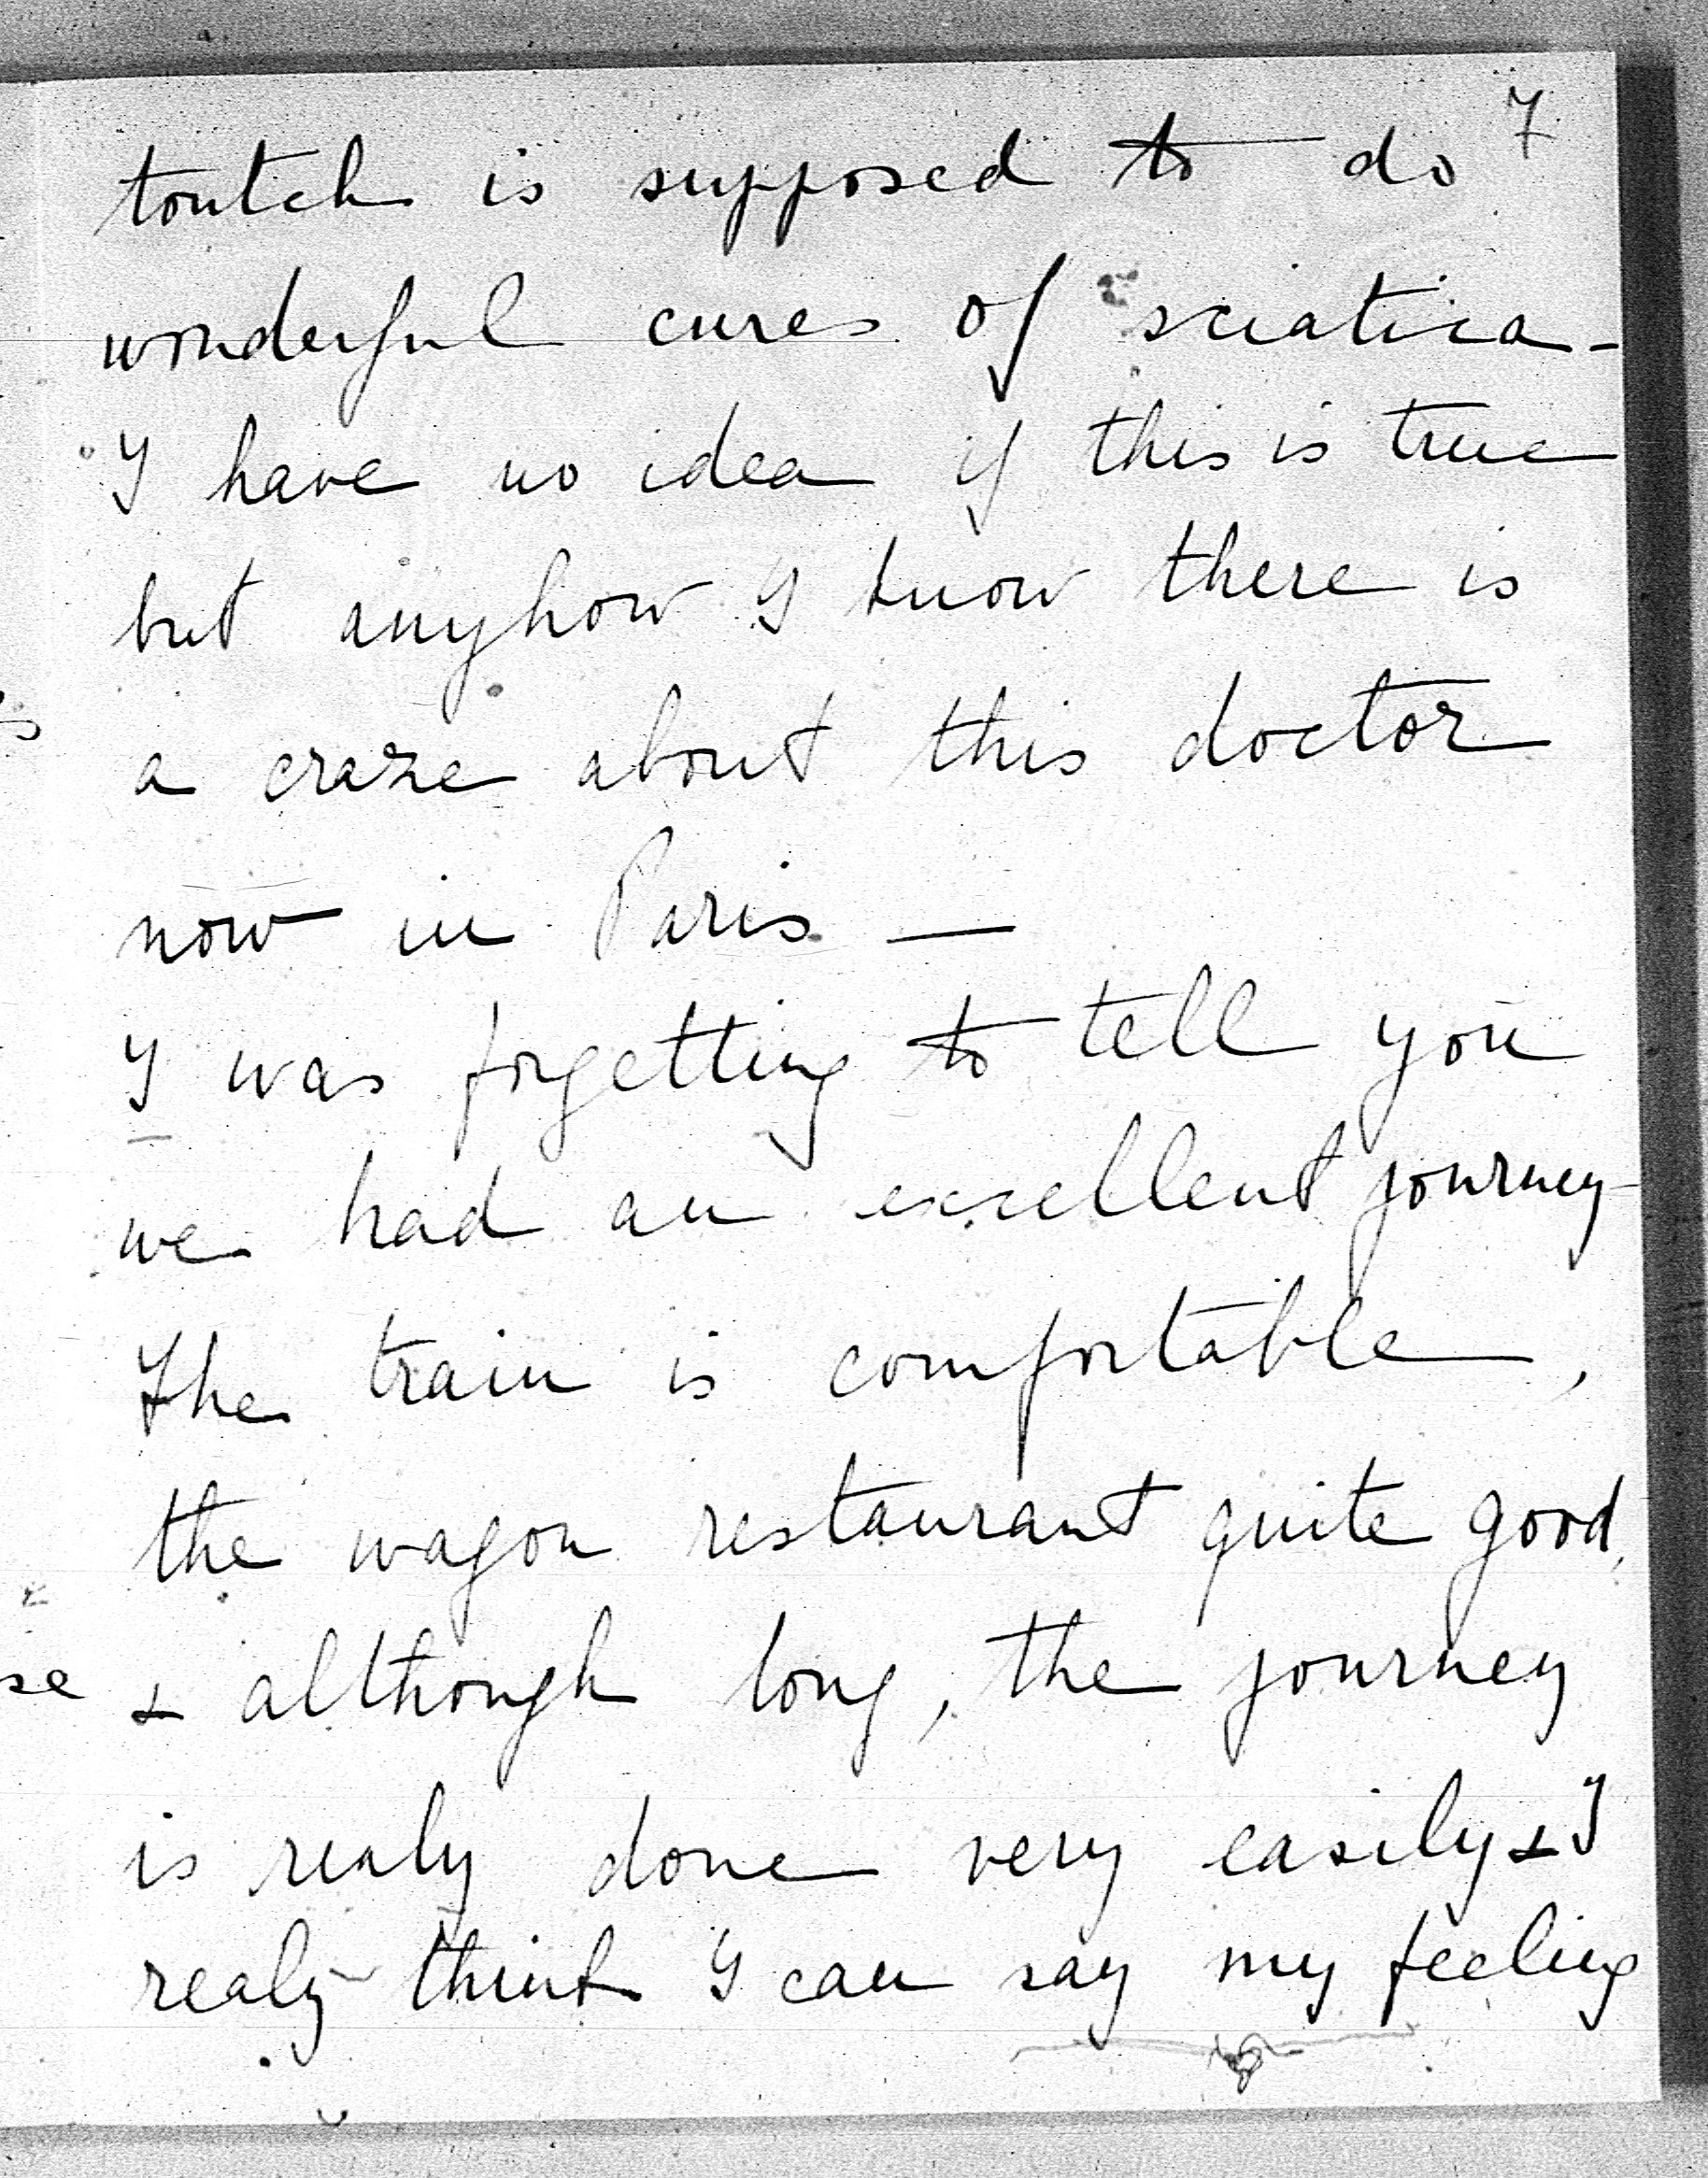 7
toutch is supposed to do
wonderful cures of sciatica -
I have no idea if this is true
but anyhow I know there is
a craze about this doctor
now in Paris —
I was forgetting to tell you
we had an excellent journey
The train is comfortable,
the wagon restaurant quite good,
& although long, the journey
is realy done very easily & I
realy think I can say my feeling